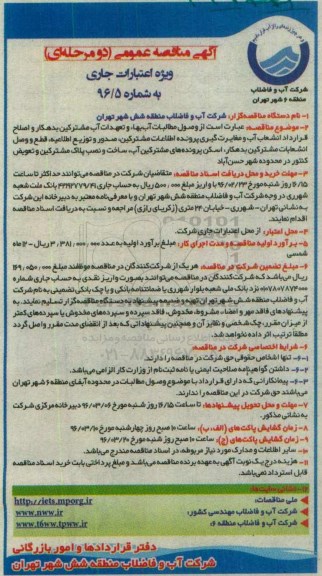 آگهی مناقصه عمومی (دو مرحله‌ای)
ویژه اعتبارات جاری
به شماره ۹۶/۵
شرکت آب و فاضلاب
منطقه ۶ شهر تهران
۱- نام دستگاه مناقصه‌گزار: شرکت آب و فاضلاب منطقه شش شهر تهران
۲- موضوع مناقصه: عبارت است از وصول مطالبات آب‌بها، و تعهدات آب مشترکین بدهکار و اصلاح
قرارداد انشعاب آب و مغایرت گیری پرونده اطلاعات مشترکین، صدور و توزیع اطلاعیه، قطع و وصل
انشعابات مشترکین بدهکار، اسکن پرونده‌های مشترکین آب، ساخت و نصب پلاک مشترکین و تعویض
کنتور در محدوده شهر حسن‌آباد
۳- مهلت خرید و محل دریافت اسناد مناقصه: متقاضیان شرکت در مناقصه می‌توانند حداکثر تا ساعت
۱۶/۱۵ روز شنبه مورخ ۹۶/۰۲/۲۳ با واریز مبلغ ۵۰۰,۰۰۰ ریال به حساب جاری بانک ملت شعبه
شهرری در وجه شرکت آب و فاضلاب منطقه شش شهر تهران و با معرفی‌نامه معتبر به دبیرخانه این شرکت
به نشانی تهران - شهرری - خیابان ۲۴ متری (زکریای رازی) مراجعه و نسبت به دریافت اسناد مناقصه
اقدام نمایند.
۴- محل اعتبار: از محل اعتبارات جاری شرکت.
۵- برآورد اولیه مناقصه و مدت اجرای کار: مبلغ برآورد اولیه به عدد ۳,۳۸۱,۰۰۰,۰۰۰ ریال - ۱۲ ماه
شمسی
۶- مبلغ تضمین شرکت در مناقصه: هر یک از شرکت‌کنندگان در مناقصه موظفند مبلغ ۱۶۹,۰۵۰,۰۰۰
ریال می‌باشد که شرکت‌کنندگان در مناقصه می‌توانند بصورت واریز نقدی به حساب جاری شماره
نزد بانک ملی شعبه بلوار شهرری یا ضمانتنامه بانکی و یا چک بانکی تضمینی به نام شرکت
آب و فاضلاب منطقه شش شهر تهران تهیه و ضمیمه پیشنهاد به دستگاه مناقصه‌گزار تسلیم نمایند. به
پیشنهادهای فاقد مهر و امضاء، مشروط، مخدوش، فاقد سپرده و سپرده‌های مخدوش یا سپرده‌های کمتر
از میزان مقرر، چک شخصی و نظایر آن و همچنین پیشنهاداتی که بعد از انقضای مدت مقرر واصل گردد
مطلقاً ترتیب اثر داده نخواهد شد.
۶- شرایط اختصاصی شرکت در مناقصه:
۶-۱- تنها اشخاص حقوقی حق شرکت در مناقصه را دارند.
۶-۲- داشتن گواهینامه صلاحیت ایمنی یا نامه ثبت‌نام از وزارت کار الزامی می‌باشد.
۶-۳- پیمانکارانی که دارای قرارداد با موضوع وصول مطالبات در محدوده آبفای منطقه ۶ شهر تهران
می‌باشند حق شرکت در این مناقصه را ندارند.
۷- مهلت و محل تحویل پیشنهادها: تا ساعت ۱۶/۱۵ روز شنبه مورخ ۹۶/۰۳/۰۶ دبیرخانه مرکزی شرکت
به نشانی مذکور.
۸- زمان گشایش پاکت‌های (الف، ب): ساعت ۱۰ صبح روز چهارشنبه مورخ ۹۶/۰۳/۱۰
۹- زمان گشایش پاکت‌های (ج): ساعت ۱۰ صبح روز شنبه مورخ
۱۰- سایر اطلاعات و مدارک مورد نیاز مربوطه، در اسناد مناقصه مندرج می‌باشد.
۱۱- هزینه درج یک نوبت آگهی به عهده برنده مناقصه می‌باشد و مبلغ پرداختی بابت خرید اسناد مناقصه
قابل استرداد نمی‌باشد.
ملی مناقصات: http://iets.mporg.ir
شرکت آب و فاضلاب مهندسی کشور: www.nww.ir
شرکت آب و فاضلاب منطقه ۶: www.t6ww.tpww.ir
دفتر قراردادها و امور بازرگانی
شرکت آب و فاضلاب منطقه شش شهر تهران